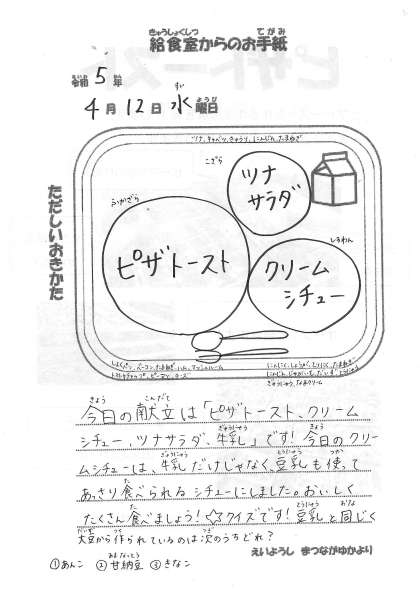 給食室からのお手紙
令和5年
4月12日水曜日
ただしいおきかた
ツナ、キャベツ、きゅうり、にんじん、たまねぎ
こざら
ツナ
サラダ
ふかざら
ピザトースト
しるわん
クリーム
シチュー
しょくパン、ベーコン、たまねぎ、ハム、マッシュルーム
トマトケチャップ、ピーマン、チーズ
ぎゅうにゅう、なまクリーム
今日の献立は「ピザトースト、クリーム
シチュー、ツナサラダ、牛乳」です！今日のクリー
ムシチューは、牛乳だけじゃなく、豆乳も使って
あっさり食べられるシチューにしました。おいしく
たくさん食べましょう！☆クイズです！豆乳と同じく
大豆から作られているのは次のうちどれ？
えいようし まつながゆかより
①あんこ ②甘納豆 ③きなこ